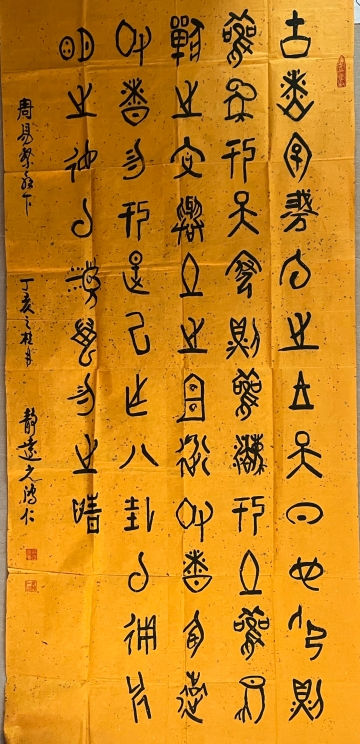 古者包犧氏之王天下也仰則
觀象於天俯則觀法於地觀鳥
獸之文與地之宜近取諸身遠
取諸物於是始作八卦以通神
明之德以類萬物之情
周易繫辭下 丁亥之桂月 靜遠